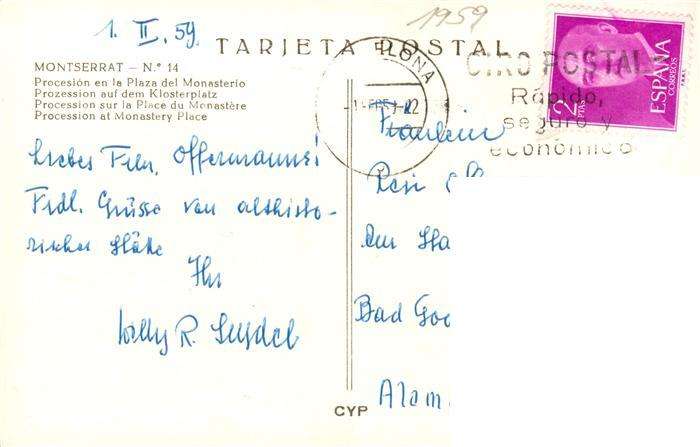 1. II. 59.
1959
TARJETA POSTAL
MONTSERRAT – N.º 14
Procesión en la Plaza del Monasterio
Prozession auf dem Klosterplatz
Procession sur la Place du Monastère
Procession at Monastery Place
GIRO POSTAL
Rápido,
seguro y
económico
2
PTAS
ESPAÑA
CORREOS
Liebes Frln. Offermanns!
Frdl. Grüsse von althisto-
rischer Stätte
Ihr
Willy R. Seydel
Fräulein
Resi
Bad Go
Alem
CYP